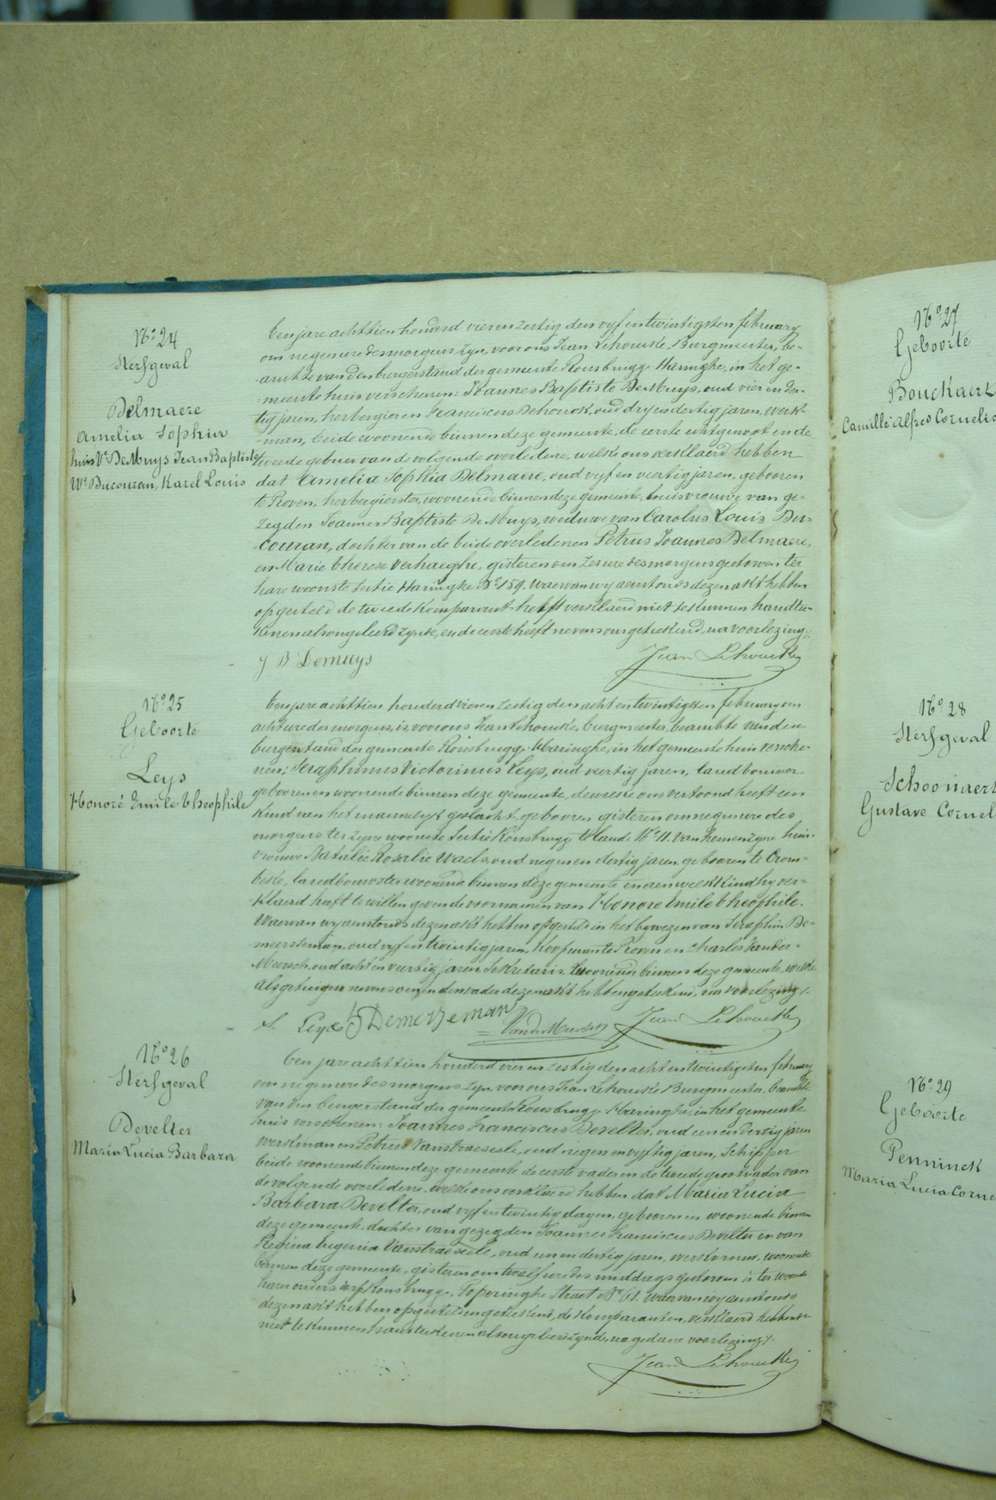 N° 24
Sterfgeval
Delmaere
Amelia Sophia
huisv. De Muys Jean Baptiste
We Ducouran, Karel Louis
Een jare achttien honderd vier en zestig den vyf en twintigsten february
om negen ure des morgens zyn, voor ons Jean Lehoucke Burgmeester, be-
ambte van den burgerstand der gemeente Rousbrugge Haringhe, in het ge-
meente huis verschenen: Joannes Baptiste De Muys, oud vier en der-
tig jaren, herbergier en Franciscus Dehonck, oud dry en dertig jaren, werk-
man, beide woonende binnen deze gemeente, de eerste echtgenoot en de
tweede gebuer van de volgende overledene, welke ons verklaerd hebben
dat Amelia Sophia Delmaere, oud vyf en veertig jaren, gebooren
te Proven, herbergierster, woonende binnen deze gemeente, huisvrouwe van ge-
zegden Joannes Baptiste De Muys, weduwe van Carolus Louis Du-
couran, dochter van de beide overledenen Petrus Joannes Delmaere,
en Marie Therese Verhaeghe, gisteren ten zes ure des morgens gestorven ter
hare woonste sectie Haringhe N° 159. Waervan wy aenstonds dezen akt hebben
opgesteld de tweede komparant heeft verklaerd niet te kunnen handtee-
kenen als ongeleerd zynde, en de eerste heeft nevens ons geteekend, na voorlezing.
J B Demuys
Jean Lehoucke
N° 25
Geboorte
Leys
Honoré Emile Theophile
Een jare achttien honderd vier en zestig den acht en twintigsten february om
acht ure des morgens, is voor ons Jean Lehoucke, burgmeester, beambte van den
burgerstand der gemeente Rousbrugge Haringhe, in het gemeente huis versche-
nen; Seraphinus Victorinus Leys, oud veertig jaren, landbouwer
gebooren en woonende binnen deze gemeente, dewelke ons vertoond heeft een
kind van het mannelyk geslacht, gebooren gisteren om negen ure des
morgens ter zyne woonste sectie Rousbrugge te lande N° 11. van hem en zyne huis-
vrouwe Natalie Rosalie Waels oud negen en dertig jaren, gebooren te Crom-
beke, landbouwster woonende binnen deze gemeente en aen welk kind hy ver-
klaerd heeft te willen geven de voornamen van Honoré Emile Theophile.
Waervan wy aenstonds dezen akt hebben opgesteld in het bywezen van Seraphin De-
meersseman, oud vyf en twintig jaren, te Proven en Charles Vander-
Meersch, oud acht en veertig jaren, Sekretaris woonende binnen deze gemeente, welke
als getuigen nevens ons en den vader dezen akt hebben geteekend, na voorlezing.
S. Leys
Vander Meersch
Jean Lehoucke
N° 26
Sterfgeval
Develter
Maria Lucia Barbara
Een jare achttien honderd vier en zestig den acht en twintigsten february
om negen ure des morgens zyn, voor ons Jean Lehoucke Burgmeester, beambte
van den burgerstand der gemeente Rousbrugge Haringhe in het gemeente
huis verschenen: Joannes Franciscus Develter, oud een en dertig jaren
werkman en Petrus Vanstraeseele, oud negen en vyftig jaren, schipper
beide woonende binnen deze gemeente de eerste vader en de tweede grootvader van
de volgende overledene, welke ons verklaerd hebben dat Maria Lucia
Barbara Develter, oud vyf en twintig dagen, gebooren en woonende binnen
deze gemeente, dochter van gezegden Joannes Franciscus Develter en van
Regina Eugenia Vanstraeseele, oud een en dertig jaren, werkvrouw, woonende
binnen deze gemeente, gisteren om twaelf ure des middags gestorven is ter woonste
harer ouders dorp Rousbrugge, Poperinghe Straet N° 51. Waervan wy aenstonds
dezen akt hebben opgesteld en geteekend, de komparanten, verklaerd hebbende
niet te kunnen handteekenen als ongeleerd zynde, na gedane voorlezing.
Jean Lehoucke
N° 27
Geboorte
Bouckaert
Camille Alfred Cornelis
N° 28
Sterfgeval
Schoonaert
Gustave Cornel
N° 29
Geboorte
Penninck
Maria Lucia Corne